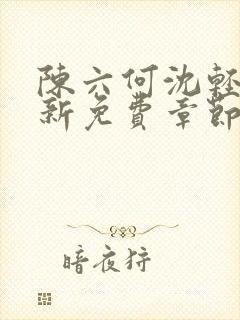 陳六何沈輕
新免費章節
暗夜狩